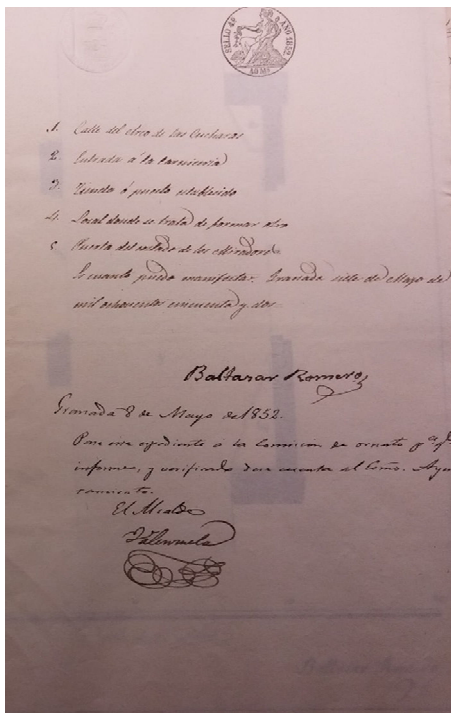 SELLO 4º AÑO 1852
40 MS
1. Calle del Arco de las Cucharas
2. Entrada á la Carnicería
3. Tienda ó puesto establecido
4. Local donde se trata de formar otro
5. Puerta del de los Miradores
Es cuanto puedo manifestar. Granada siete de Mayo de
mil ochocientos cincuenta y dos.
Baltasar Romero
Granada 8 de Mayo de 1852.
Pase este espediente á la Comision de ornato pª qe
informe, y verificado dese cuenta al Escmo. Ayun
El Alcalde
Valenzuela
Baltasar Romero